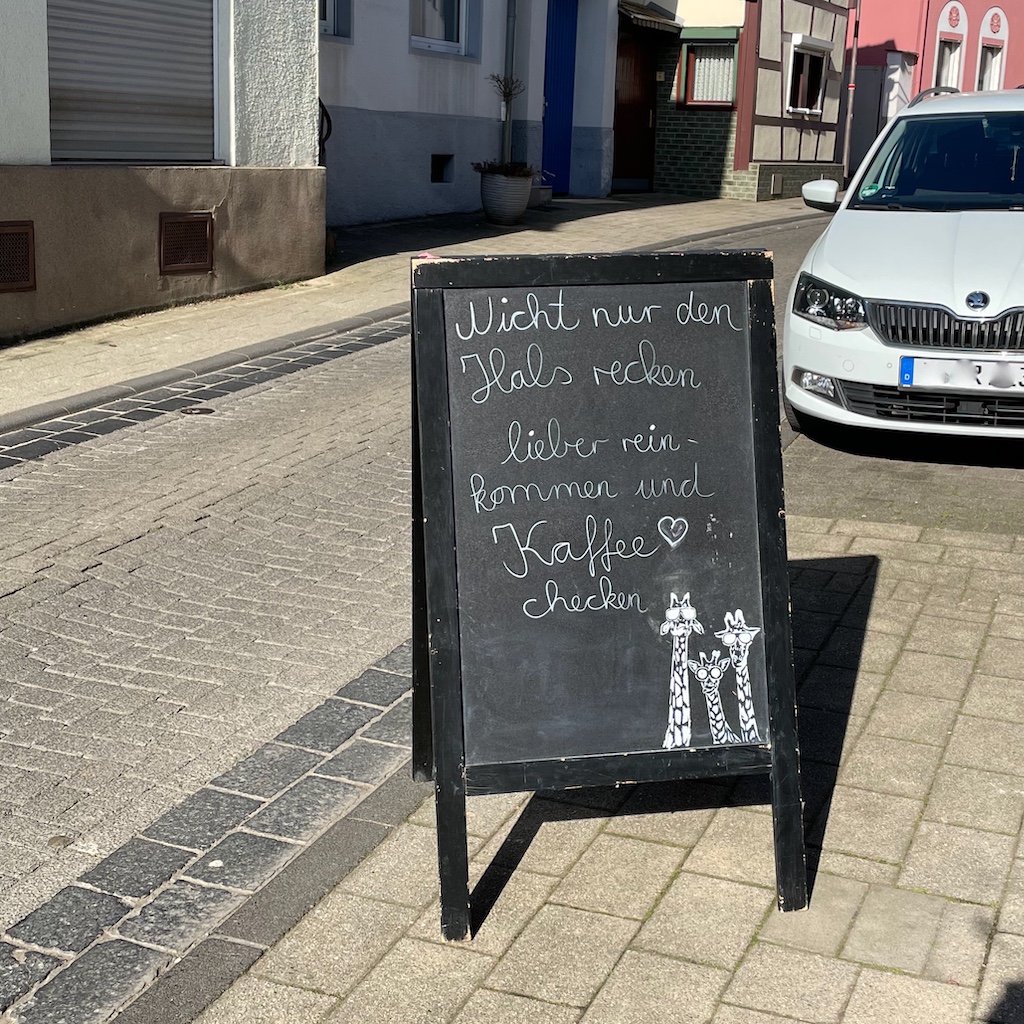 Nicht nur den
Hals recken
lieber rein-
kommen und
Kaffee♡
checken
D